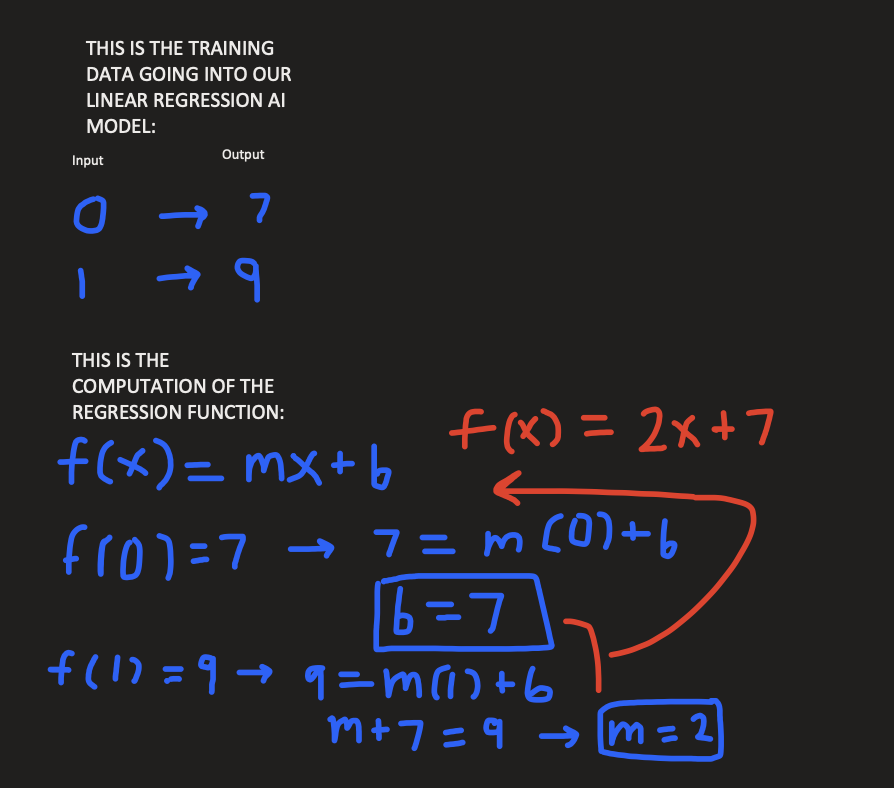 THIS IS THE TRAINING
DATA GOING INTO OUR
LINEAR REGRESSION AI
MODEL:
Input Output
0 → 7
1 → 9
THIS IS THE
COMPUTATION OF THE
REGRESSION FUNCTION:
f(x) = mx + b
f(x) = 2x + 7
f(0) = 7 → 7 = m(0) + b
b = 7
f(1) = 9 → 9 = m(1) + b
m + 7 = 9 → m = 2